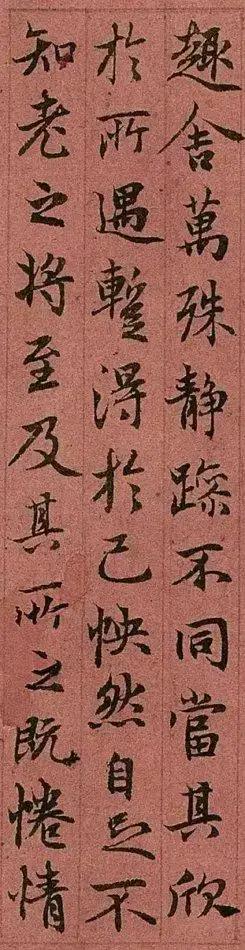 趣舍萬殊静躁不同當其欣
於所遇蹔得於己怏然自足不
知老之将至及其所之既惓情